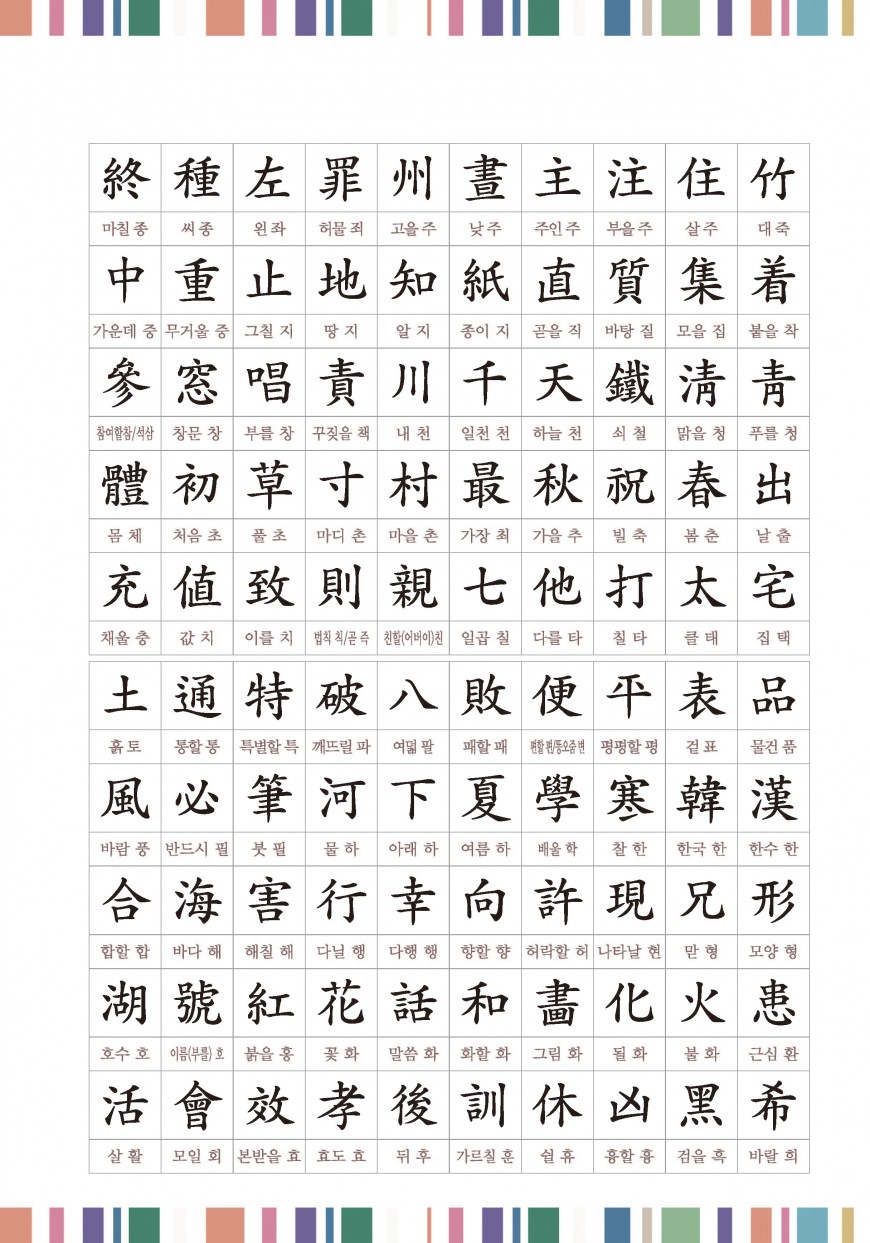 終 種 左 罪 州 晝 主 注 住 竹
마칠 종 씨 종 왼 좌 허물 죄 고을 주 낮 주 주인 주 부을 주 살 주 대 죽
中 重 止 地 知 紙 直 質 集 着
가운데 중 무거울 중 그칠 지 땅 지 알 지 종이 지 곧을 직 바탕 질 모을 집 붙을 착
參 窓 唱 責 川 千 天 鐵 淸 靑
참여할참/석삼 창문 창 부를 창 꾸짖을 책 내 천 일천 천 하늘 천 쇠 철 맑을 청 푸를 청
體 初 草 寸 村 最 秋 祝 春 出
몸 체 처음 초 풀 초 마디 촌 마을 촌 가장 최 가을 추 빌 축 봄 춘 날 출
充 値 致 則 親 七 他 打 太 宅
채울 충 값 치 이를 치 법칙 칙/곧 즉 친할(어버이)친 일곱 칠 다를 타 칠 타 클 태 집 택
土 通 特 破 八 敗 便 平 表 品
흙 토 통할 통 특별할 특 깨뜨릴 파 여덟 팔 패할 패 편할 편/똥오줌 변 평평할 평 겉 표 물건 품
風 必 筆 河 下 夏 學 寒 韓 漢
바람 풍 반드시 필 붓 필 물 하 아래 하 여름 하 배울 학 찰 한 한국 한 한수 한
合 海 害 行 幸 向 許 現 兄 形
합할 합 바다 해 해칠 해 다닐 행 다행 행 향할 향 허락할 허 나타날 현 맏 형 모양 형
湖 號 紅 花 話 和 畵 化 火 患
호수 호 이름(부를) 호 붉을 홍 꽃 화 말씀 화 화할 화 그림 화 될 화 불 화 근심 환
活 會 效 孝 後 訓 休 凶 黑 希
살 활 모일 회 본받을 효 효도 효 뒤 후 가르칠 훈 쉴 휴 흉할 흉 검을 흑 바랄 희